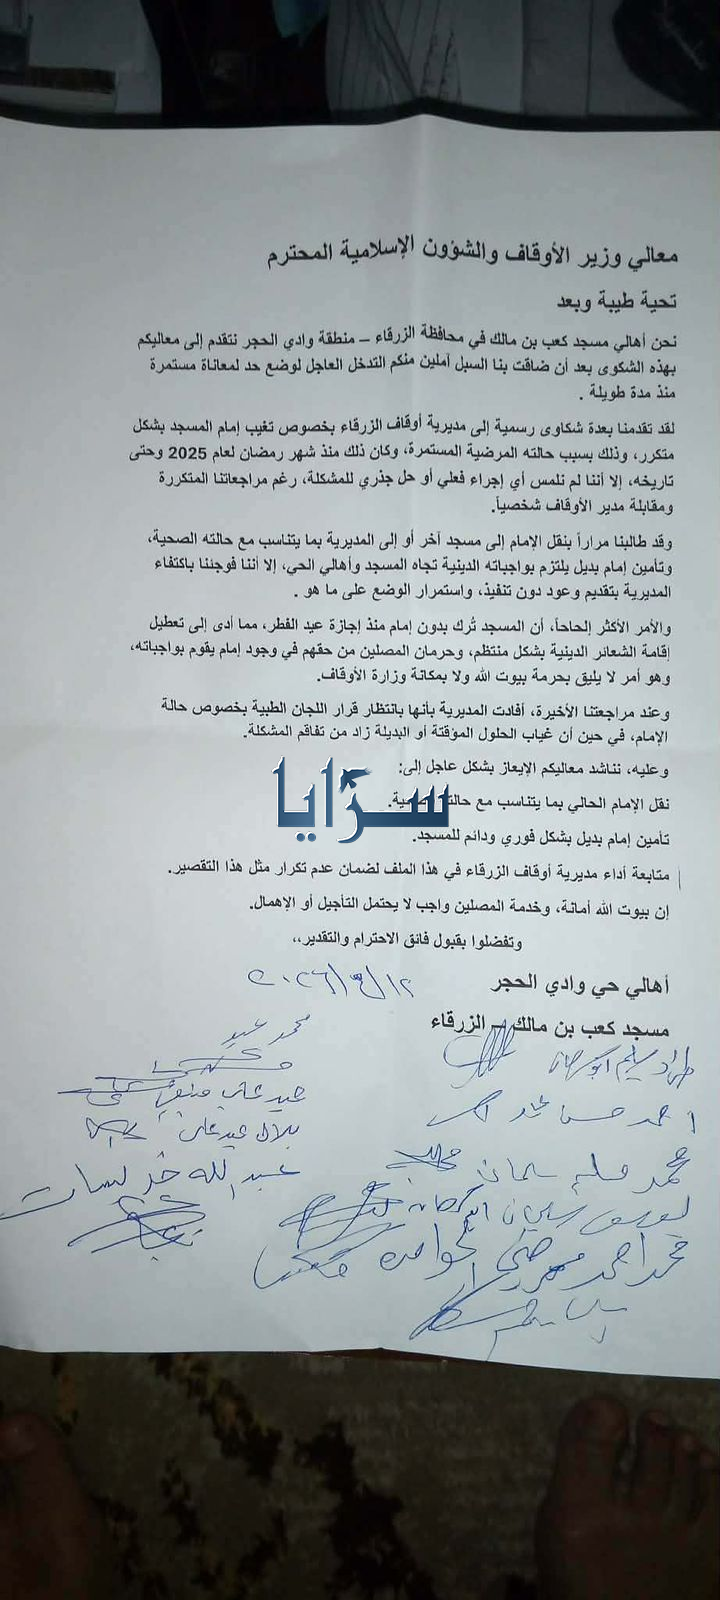 معالي وزير الأوقاف والشؤون الإسلامية المحترم
تحية طيبة وبعد
نحن أهالي مسجد كعب بن مالك في محافظة الزرقاء – منطقة وادي الحجر نتقدم إلى معاليكم
بهذه الشكوى بعد أن ضاقت بنا السبل آملين منكم التدخل العاجل لوضع حد لمعاناة مستمرة
منذ مدة طويلة .
لقد تقدمنا بعدة شكاوى رسمية إلى مديرية أوقاف الزرقاء بخصوص تغيب إمام المسجد بشكل
متكرر، وذلك بسبب حالته المرضية المستمرة، وكان ذلك منذ شهر رمضان لعام 2025 وحتى
تاريخه، إلا أننا لم نلمس أي إجراء فعلي أو حل جذري للمشكلة، رغم مراجعاتنا المتكررة
ومقابلة مدير الأوقاف شخصياً.
وقد طالبنا مراراً بنقل الإمام إلى مسجد آخر أو إلى المديرية بما يتناسب مع حالته الصحية،
وتأمين إمام بديل يلتزم بواجباته الدينية تجاه المسجد وأهالي الحي، إلا أننا فوجئنا باكتفاء
المديرية بتقديم وعود دون تنفيذ، واستمرار الوضع على ما هو .
والأمر الأكثر إلحاحاً، أن المسجد تُرك بدون إمام منذ إجازة عيد الفطر، مما أدى إلى تعطيل
إقامة الشعائر الدينية بشكل منتظم، وحرمان المصلين من حقهم في وجود إمام يقوم بواجباته،
وهو أمر لا يليق بحرمة بيوت الله ولا بمكانة وزارة الأوقاف.
وعند مراجعتنا الأخيرة، أفادت المديرية بأنها بانتظار قرار اللجان الطبية بخصوص حالة
الإمام، في حين أن غياب الحلول المؤقتة أو البديلة زاد من تفاقم المشكلة.
وعليه، نناشد معاليكم الإيعاز بشكل عاجل إلى:
سرايا
نقل الإمام الحالي بما يتناسب مع
تأمين إمام بديل بشكل فوري ودائم للمسجد.
متابعة أداء مديرية أوقاف الزرقاء في هذا الملف لضمان عدم تكرار مثل هذا التقصير.
إن بيوت الله أمانة، وخدمة المصلين واجب لا يحتمل التأجيل أو الإهمال.
وتفضلوا بقبول فائق الاحترام والتقدير،،
أهالي حي وادي الحجر
مسجد كعب بن مالك – الزرقاء
محمد عيد
احمد حسن
عيد علي
بلال عيد علي
محمد سلمان
عبد الله
محمد احمد